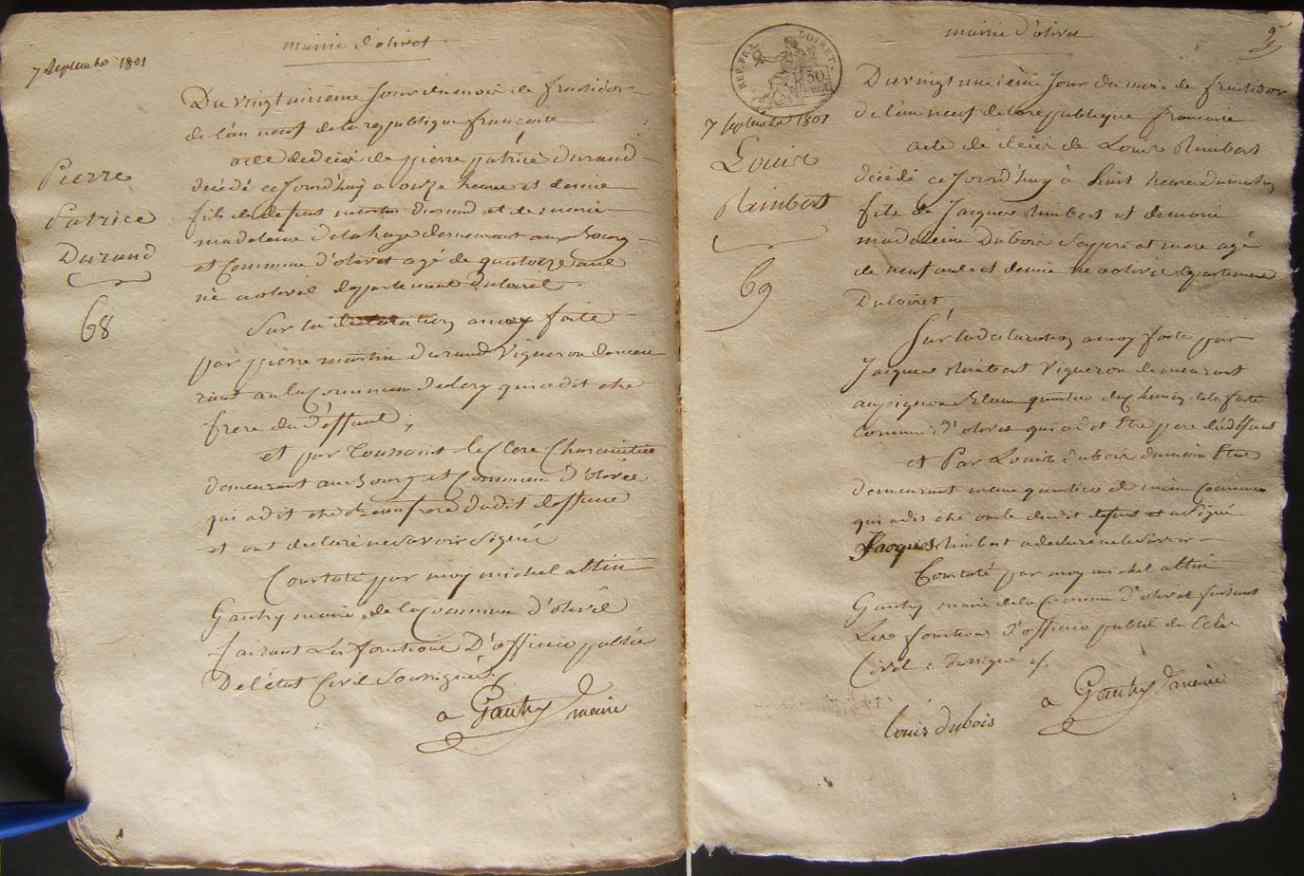 mairie d'olivet
7 Septembre 1801
Pierre
Patrice
Durand
68
Du vingtunieme Jour du mois de fructidor
de l'an neuf de la republique francoise
acte de décé de pierre patrice durand
décédé ce Jourd'huy a onze heure et demie
fils de defunt martin Durand et de marie
madelaine delahaye demeurant au Bourg
et Commune d'olivet agé de quatorze ans
né a olivet departement du loiret
Sur la declaration a moy faite
par pierre martin durand Vigneron demeu
rant au la Commune de qui a dit etre
frere du deffunt,
et par Toussant le Clerc Charcuitier
demeurant au Bourg et Commune d'olivet
qui a dit etre beaufrere dudit deffunt
et ont declaré ne savoir Signé
Constaté par moy michel attin
Gautry maire de la Commune d'olivet
faisant Les fonctions D'officier public
De l'état Civil Soussigné
a Gautry maire
mairie d'olivet
REP. FRA. LOIRET
7 Septembre 1801
Louis
Rimbert
69
Du vingt unieme Jour du mois de fructidor
de l'an neuf de la republique francoise
acte de décés de Louis Rimbert
décédé ce Jourd'huy à huit heure du matin
fils de Jacques Rimbert et de marie
madeleine Dubois Ses pere et mere agé
de neuf ans et demie né a olivet departement
Du loiret
Sur la declaration a moy faite par
Jacques Rimbert Vigneron demeurant
au quartier du
Commune d'olivet qui a dit Etre pere dudéffunt
et Par Louis dubois
demeurant meme quartier et meme Commune
qui a dit etre oncle dudit defunt et a Signé
Jacques Rimbert a declaré ne le Savoir
Constaté par moy michel attin
Gautry maire de la Commune d'olivet faisant
Les fonctions d'officier public de L'etat
Civil Soussigné
a Gautry maire
louis dubois